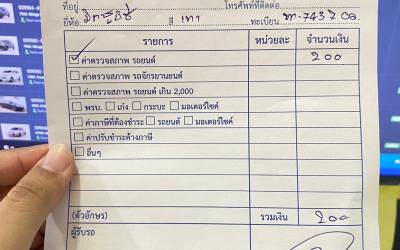 ที่อยู่ โทรศัพท์ที่ติดต่อ
ยี่ห้อ มิตซูบิชิ สี เทา ทะเบียน
รายการ หน่วยละ จำนวนเงิน
ค่าตรวจสภาพ รถยนต์ 200
ค่าตรวจสภาพ รถจักรยานยนต์
ค่าตรวจสภาพ รถยนต์ เกิน 2,000
พรบ. เก๋ง กระบะ มอเตอร์ไซค์
ค่าภาษีที่ต้องชำระ รถยนต์ มอเตอร์ไซค์
ค่าปรับชำระค้างภาษี
อื่นๆ
(ตัวอักษร) รวมเงิน 200
ผู้รับรถ